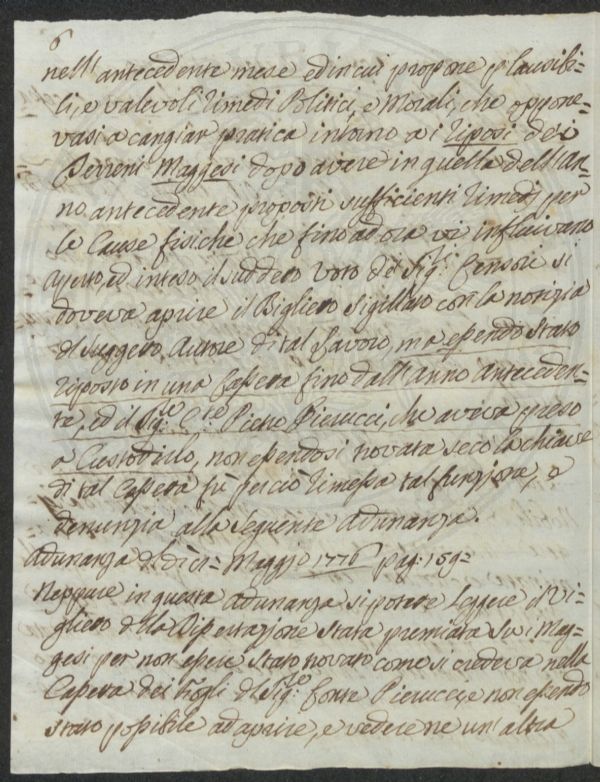 6
nell'antecedente mese ed in cui propone plausibi=
li, e valevoli rimedi Politici, e Morali, che oppone=
vasi a cangiar pratica intorno a i riposi dei
Terreni Maggesi dopo avere in quella dell'An=
no antecedente proposti sufficienti rimedj per
le Cause fisiche che fino ad ora vi influivano
aperto, ed inteso il suddetto voto dei Sigri. Censori si
doveva aprire il Biglietto sigillato con la notizia
del suggetto Autore di tal lavoro, ma essendo stato
riposto in una Cassetta fino dall'anno anteceden=
te, ed il Sigre. Cte. Pietro Pierucci, che aveva preso
a Custodirlo, non essendosi trovata seco la chiave
di tal Cassetta fù perciò rimessa tal funzione, e
denunzia alla seguente Adunanza.
Adunanza del dì 1= Maggio 1776 pag: 159=
Neppure in questa Adunanza si potette leggere il Bi=
glietto della Dissertazione stata premiata su i Mag=
gesi per non essere stato trovato come si credeva nella
Cassetta dei fogli del Sigre. Conte Pierucci, e non essendo
stato possibile ad aprire, e vederne un'altra